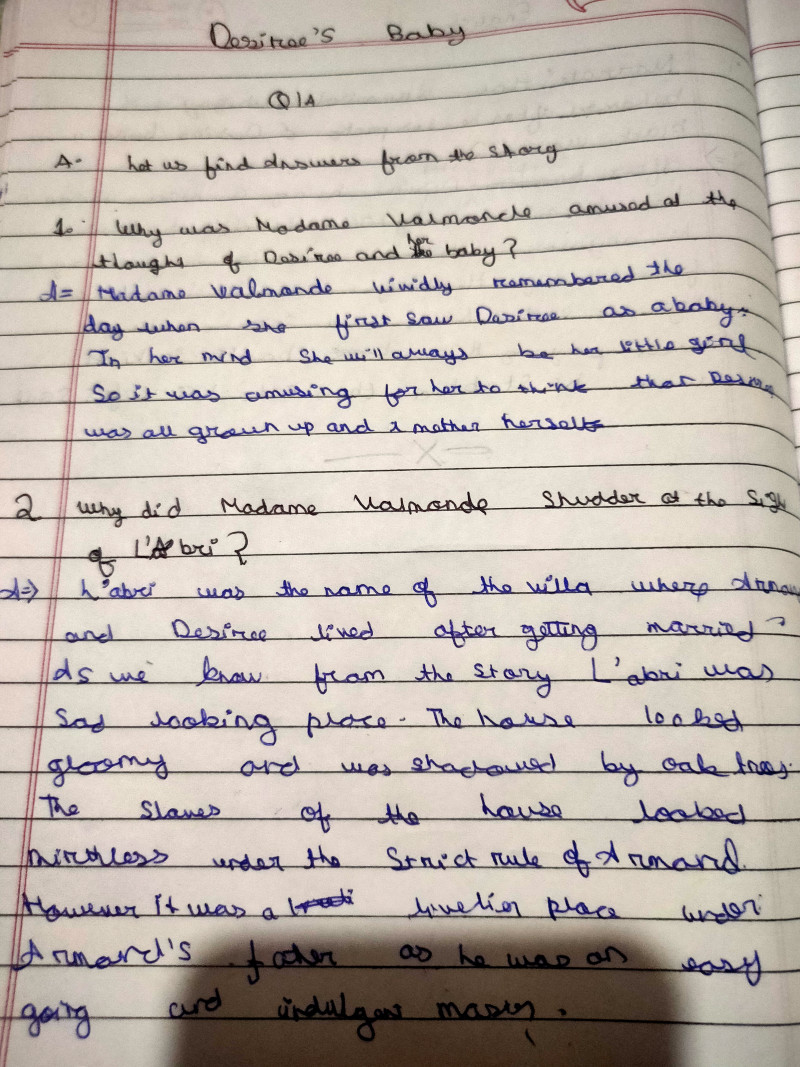 Desiree's Baby
Q/A
A. Let us find Answers from the Story
1. Why was Madame Valmonde amused at the
thought of Desiree and her baby?
A= Madame Valmonde vividly remembered the
day when she first saw Desiree as a baby.
In her mind She will always be her little girl
So it was amusing for her to think that Desiree
was all grown up and a mother herself
2 Why did Madame Valmonde Shudder at the Sigh
of L'Abri?
A=> L'abri was the name of the villa where Arman
and Desiree lived after getting married
As we know from the story L'abri was
Sad looking place. The house looked
gloomy and was shadowed by oak trees.
The Slaves of the house looked
mirthless under the Strict rule of Armand.
However it was a livelier place under
Armand's father as he was an easy
going and indulgent